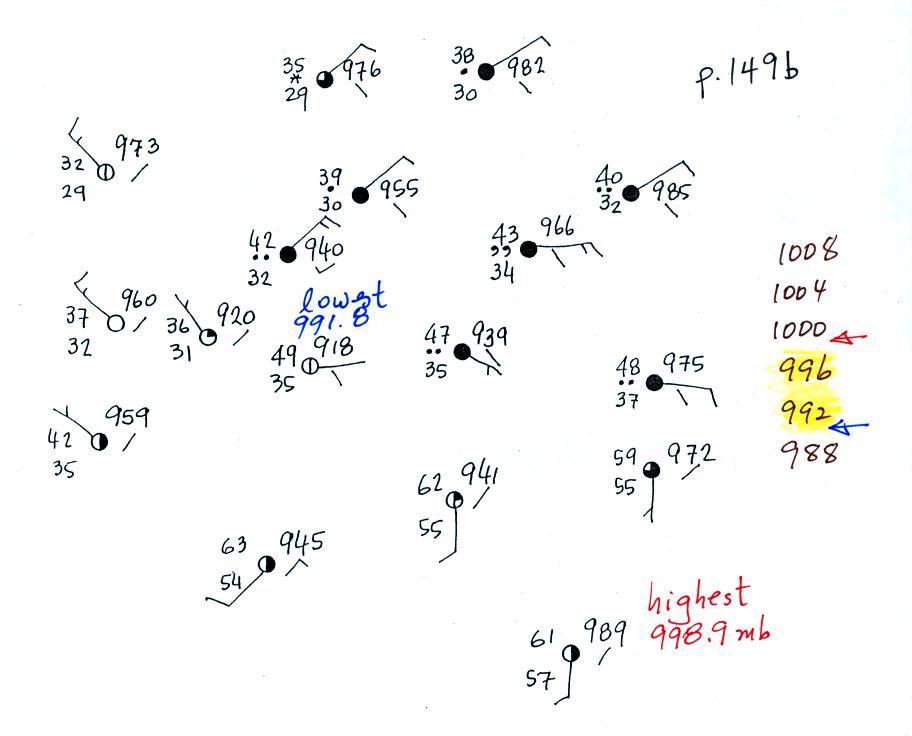 p.149b
35 976
29
38 982
30
973
32
29
39
30 955
40
32 985
42 940
32
43 966
34
37 960
32
36 920
31
lowest
991.8
49 918
35
47 939
35
48 975
37
1008
1004
1000
996
992
988
959
42
35
62 941
55
59 972
55
63 945
54
61 989
57
highest
998.9 mb